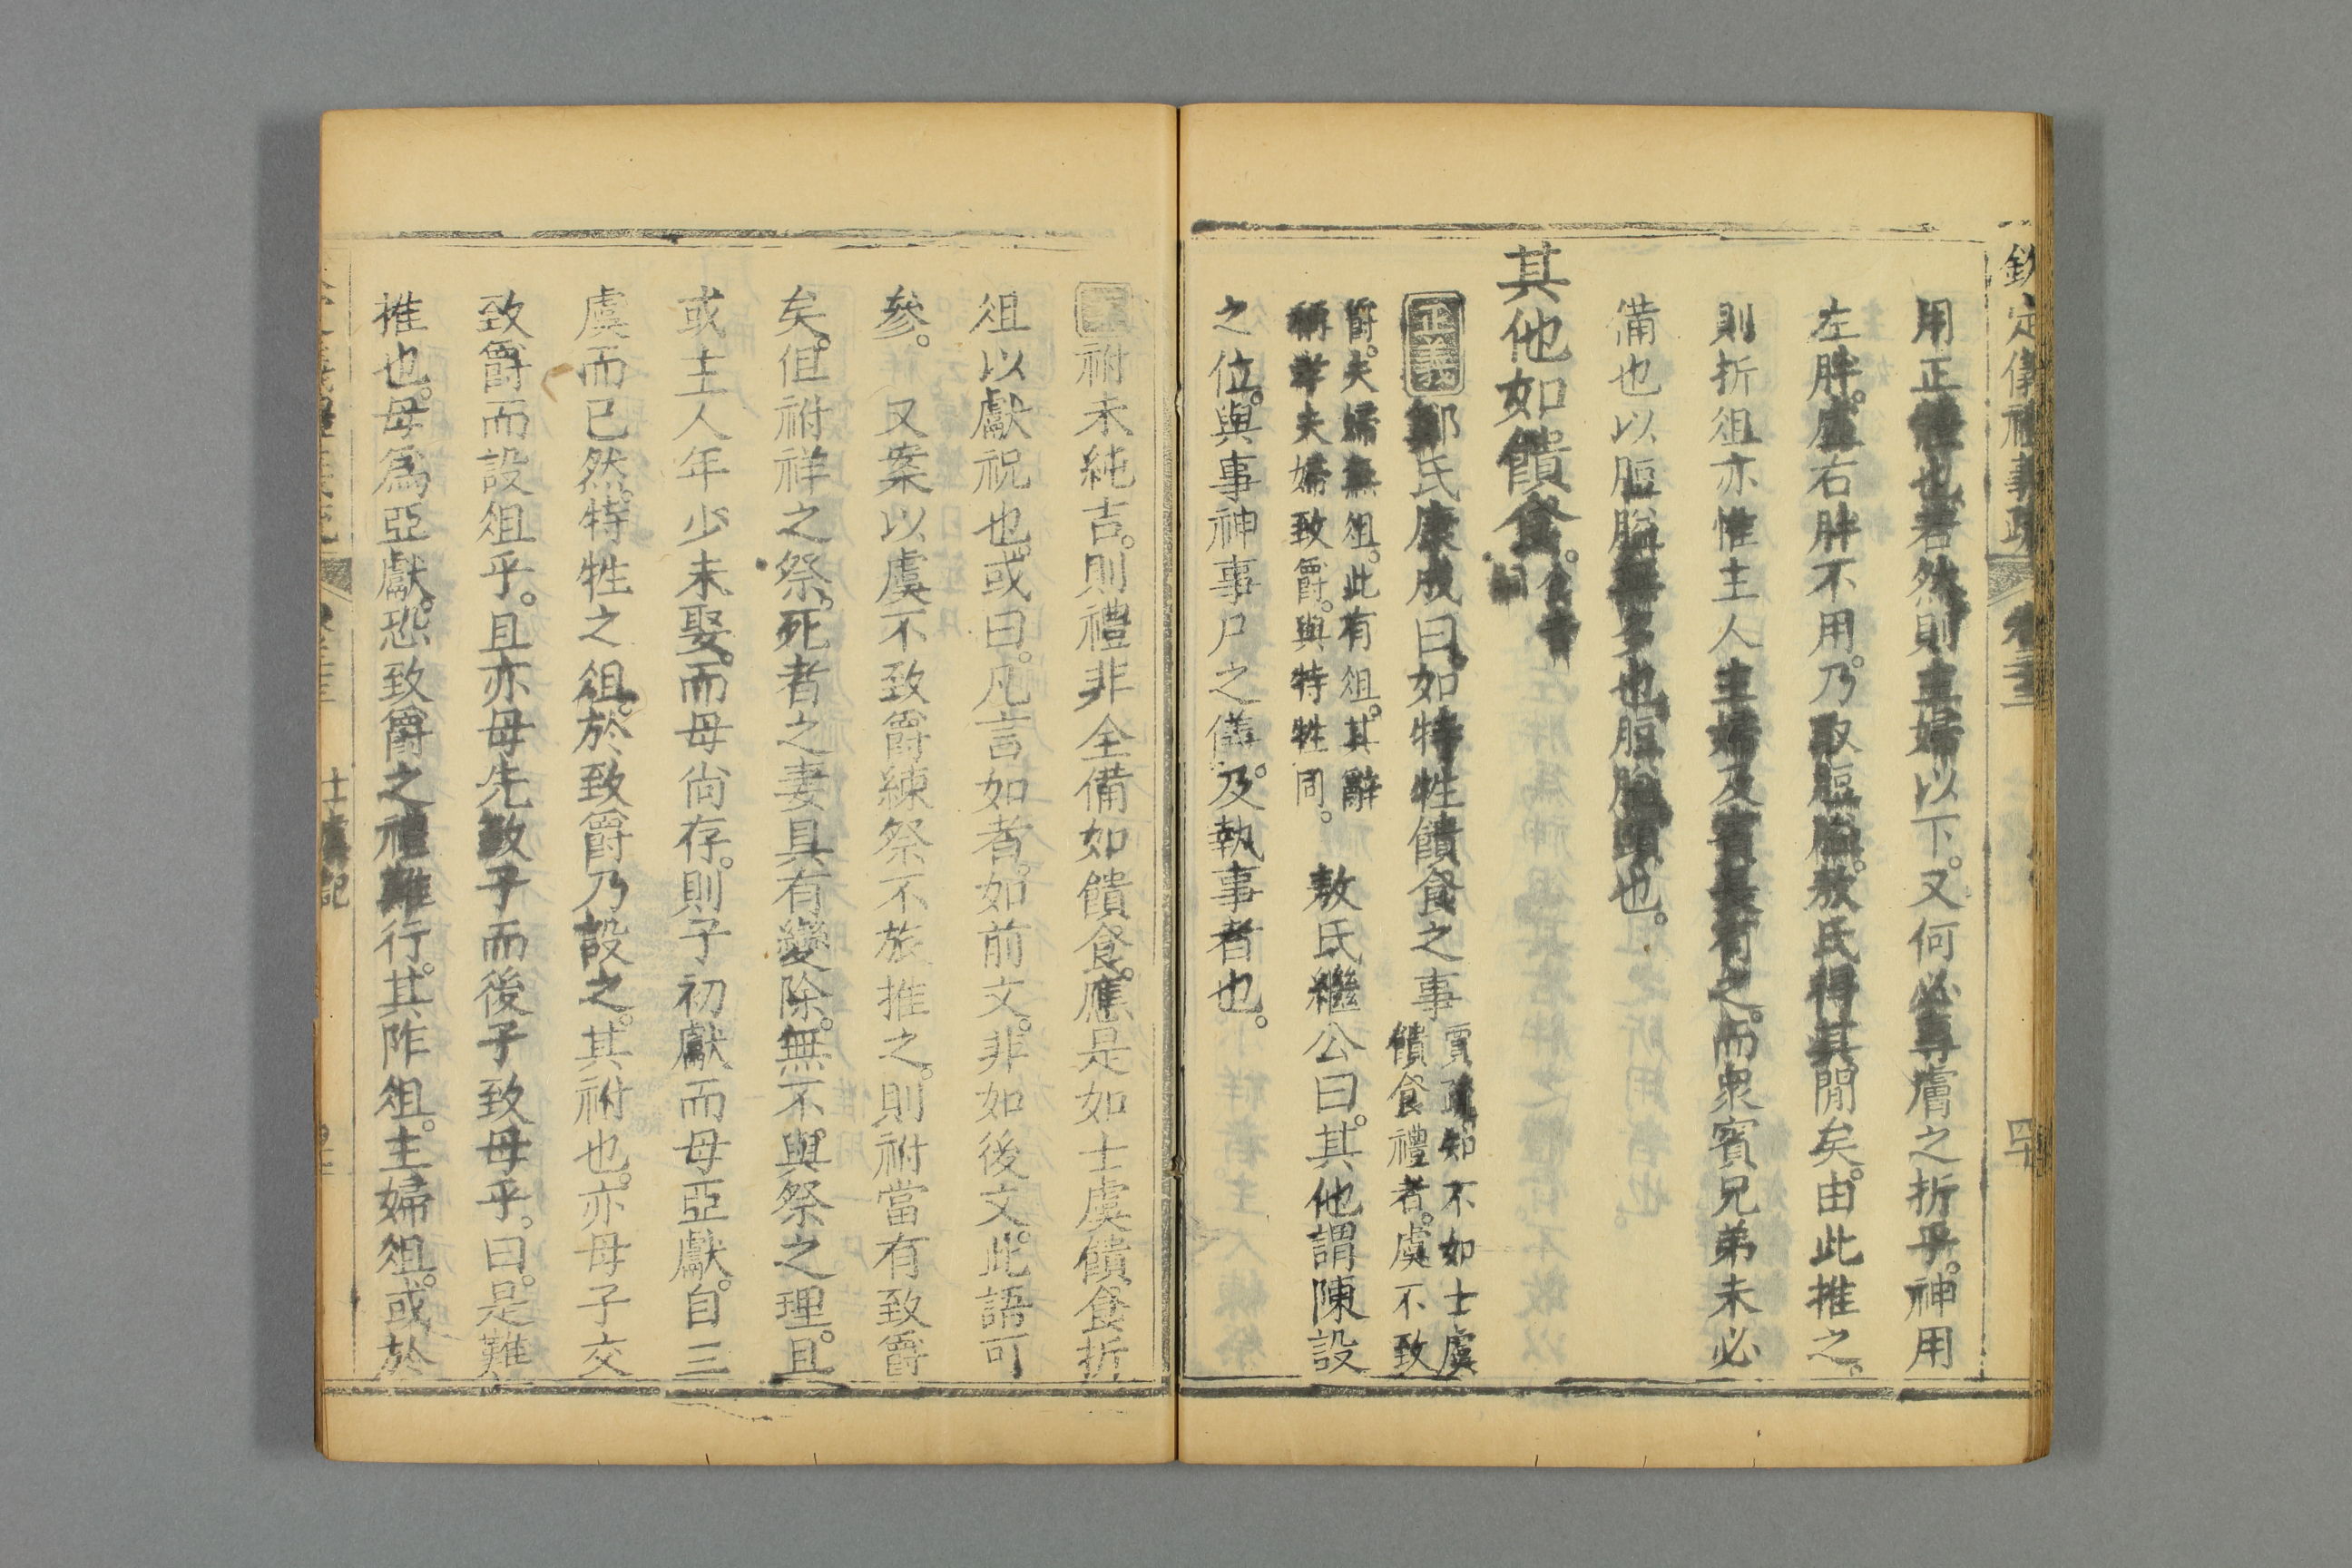 欽定儀禮義疏 卷三十三 四十
用正體也若然則主婦以下又何必專膚之折乎神用
左胖虞右胖不用乃取脰膉敖氏得其閒矣由此推之
則折俎亦惟主人主婦及賓長有之而衆賓兄弟未必
備也以脰膉無多也脰膉頭也
其他如饋食食音嗣
正義鄭氏康成曰如特牲饋食之事賈疏知不如士虞饋食禮者虞不致
爵夫婦無俎此有俎其辭稱孝夫婦致爵與特牲同 敖氏繼公曰其他謂陳設
之位與事神事尸之儀乃執事者也
祔未純吉則禮非全備如饋食應是如士虞饋食折
俎以獻祝也或曰凡言如者如前文非如後文此語可
參 又案以虞不致爵練祭不旅推之則祔當有致爵
矣但祔祥之祭死者之妻具有變除無不與祭之理且
或主人年少未娶而母尚存則子初獻而母亞獻自三
虞而已然特牲之俎於致爵乃設之其祔也亦母子交
致爵而設俎乎且亦母先致子而後子致母乎曰是難
推也母爲亞獻恐致爵之禮難行其阼俎主婦俎或於
士虞記